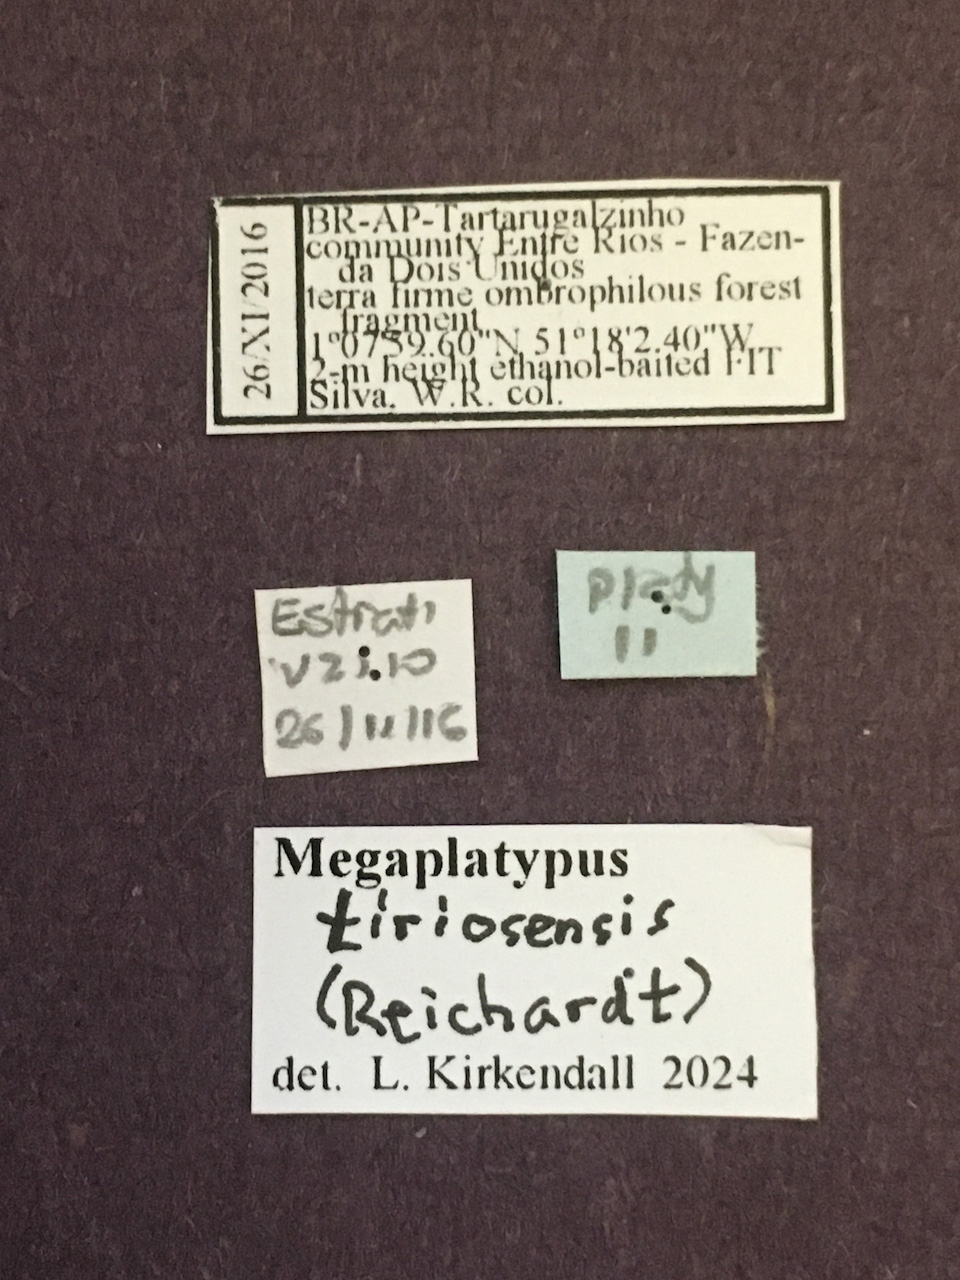 26/XI/2016
BR-AP-Tartarugalzinho
community Entre Rios - Fazen-
da Dois Unidos
terra firme ombrophilous forest
fragment
1°07'59.60"N 51°18'2.40"W
2-m height ethanol-baited FIT
Silva, W.R. col.
Estrati
26/11/16
platy
11
Megaplatypus
tiriosensis
(Reichardt)
det. L. Kirkendall 2024